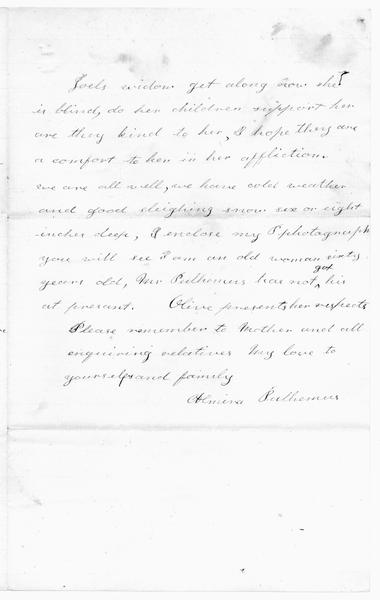 Joels widow get along now she
is blind, do her children support her
are they kind to her, I hope they are
a comfort to her in her affliction.
we are all well, we have cold weather
and good sleighing snow six or eight
inches deep, I enclose my Photagraph
you will see I am an old woman sixty
years old, Mr Pulhemus has not got his
at presant. Olive presents her respects
Please remember to Mother and all
enquiring relatives My love to
yourself and family
Almira Pulhemus